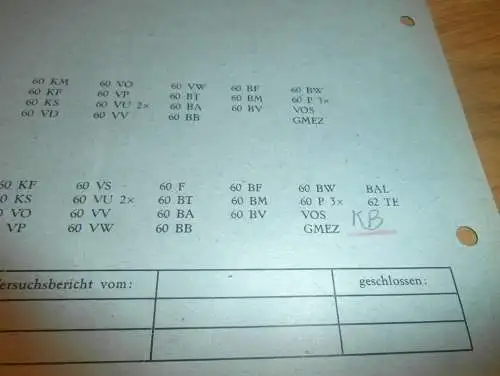 60 KM 60 VO 60 VW 60 BF 60 BW
60 KF 60 VP 60 BT 60 BM 60 P 3×
60 KS 60 VU 2× 60 BA 60 BV VOS
60 VD 60 VV 60 BB GMEZ
60 KF 60 VS 60 F 60 BF 60 BW BAL
60 KS 60 VU 2× 60 BT 60 BM 60 P 3× 62 TE
60 VO 60 VV 60 BA 60 BV VOS KB
VP 60 VW 60 BB GMEZ
ersuchsbericht vom: geschlossen: